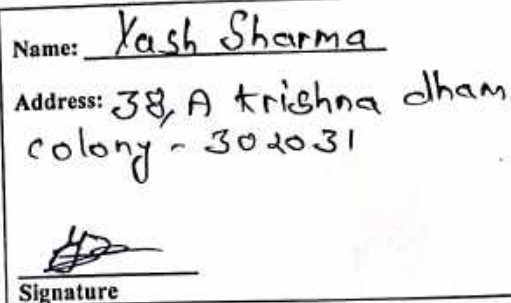 Name: Yash Sharma
Address: 38, A Krishna dham
colony - 302031
Signature